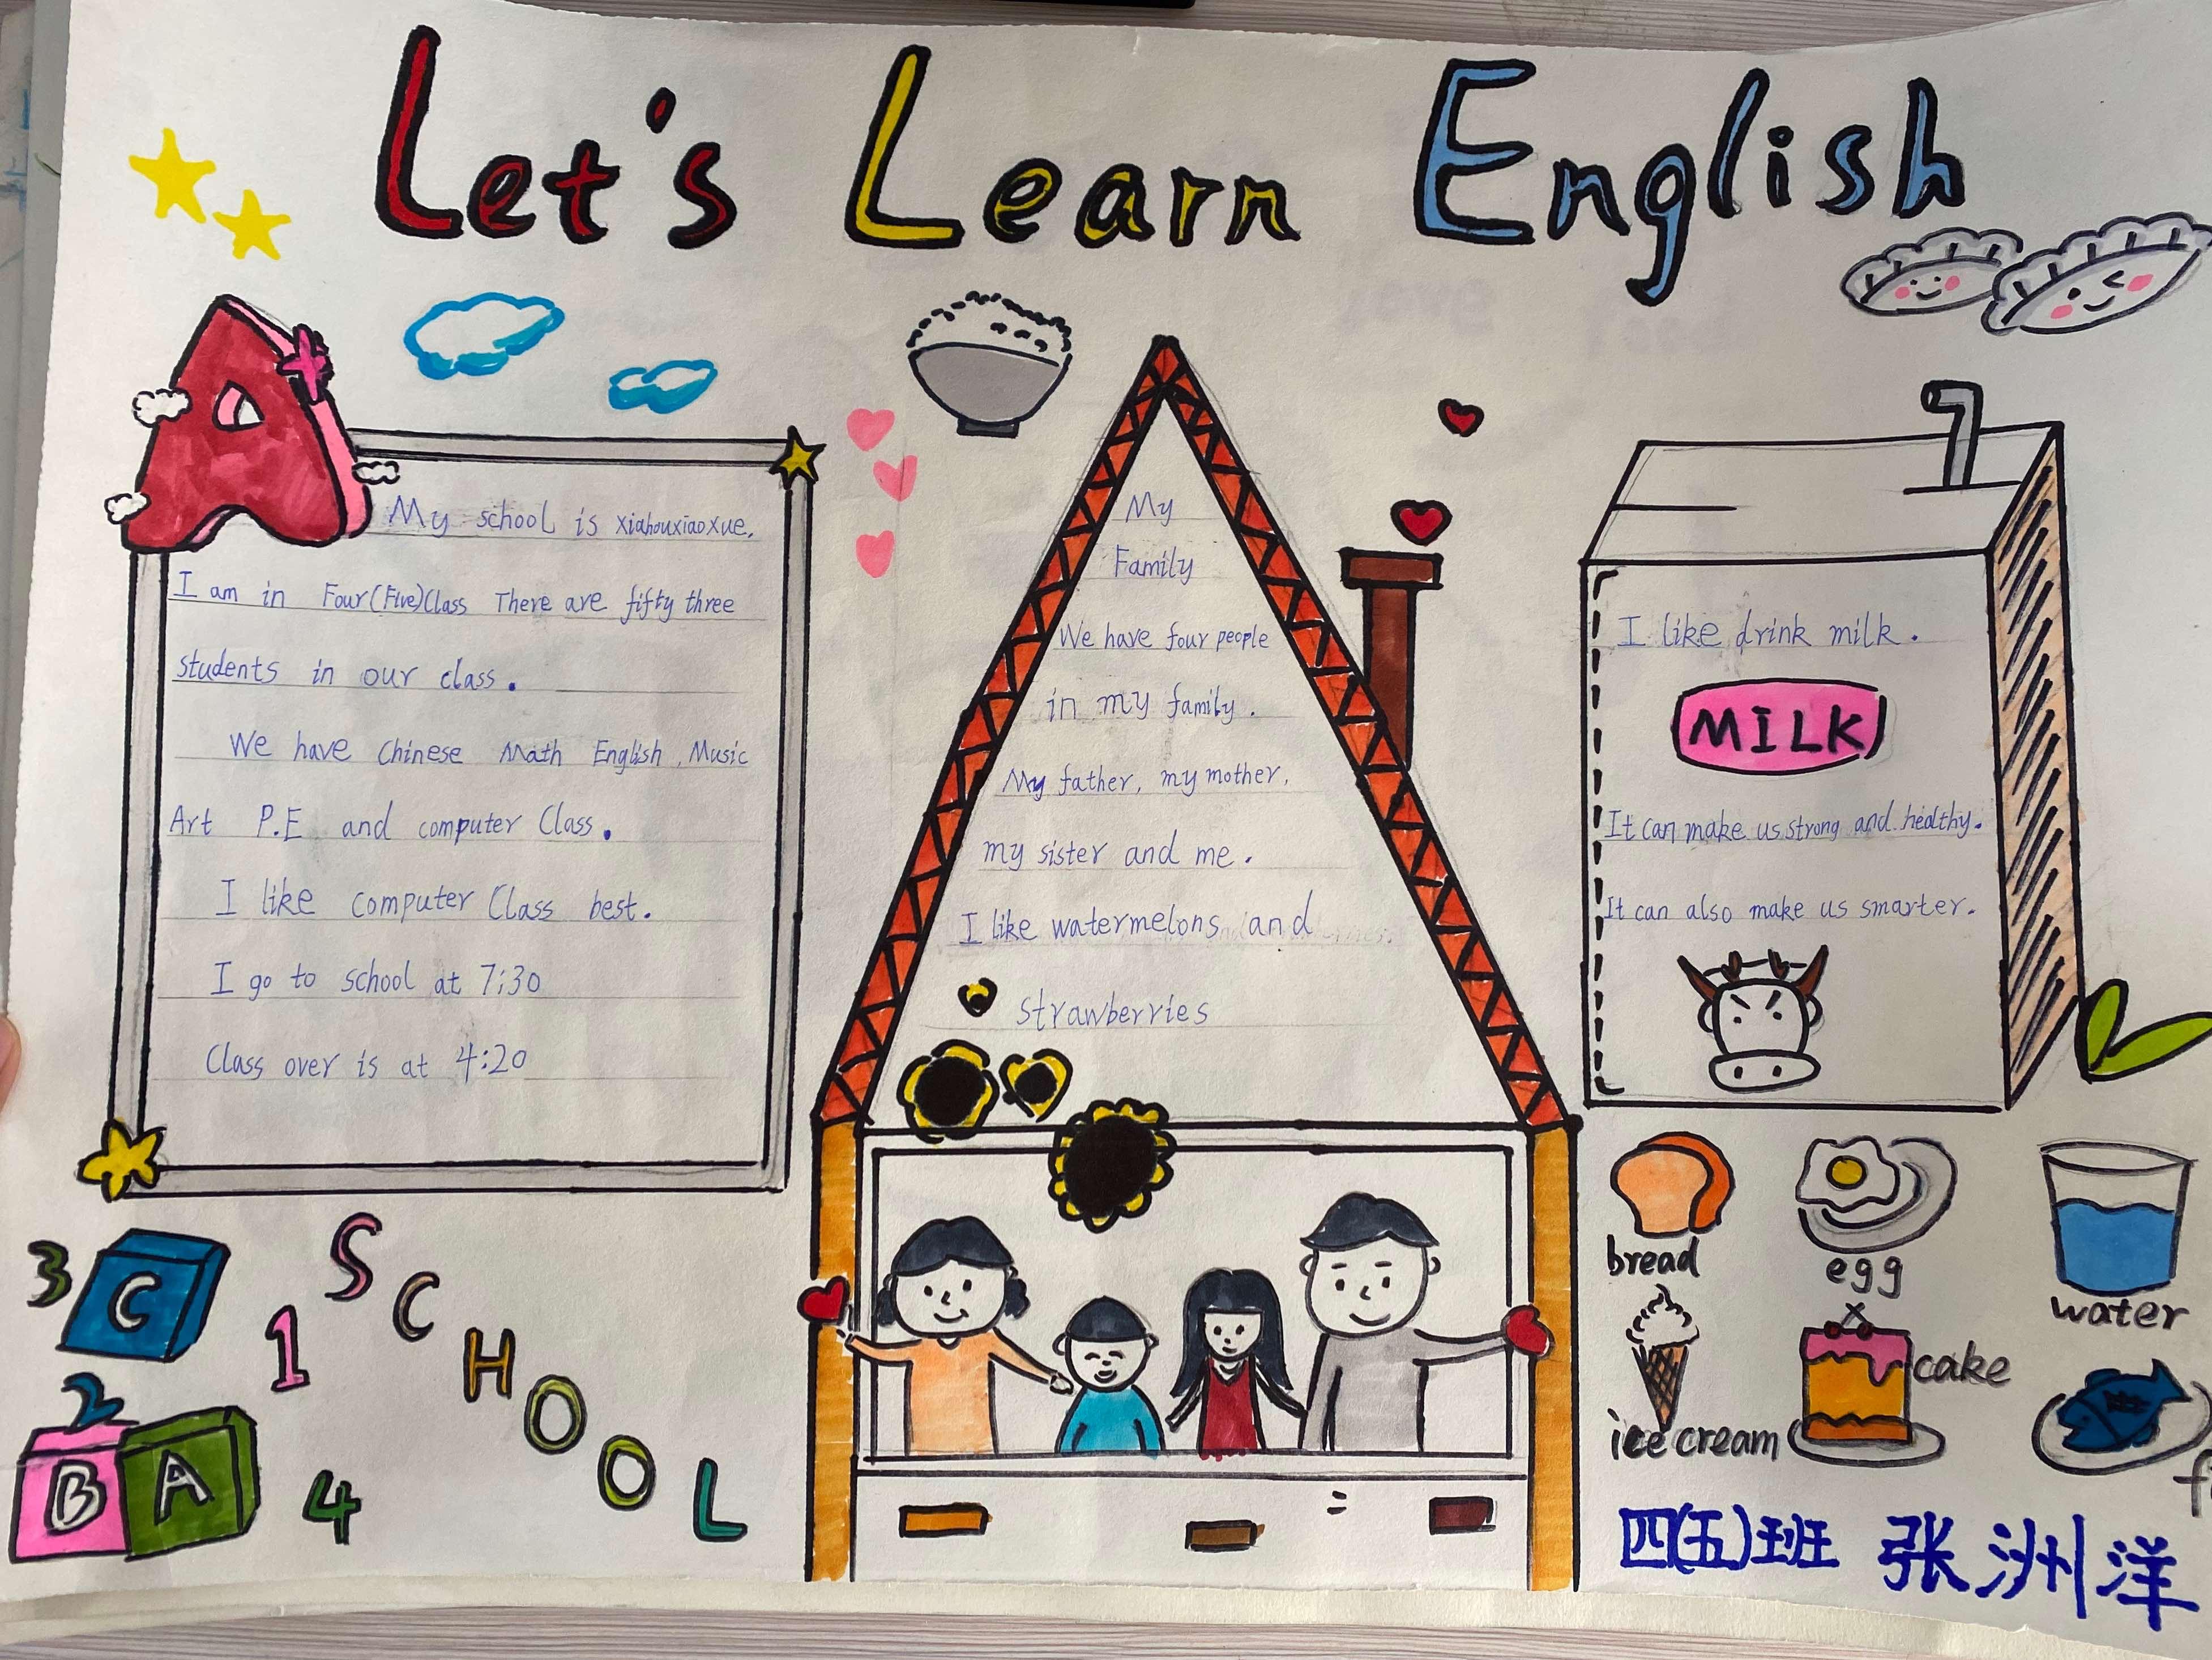 Let's Learn English
My school is xiahouxiaoxue.
I am in Four(Five)Class There are fifty three
students in our class.
We have Chinese Math English, Music
Art P.E and computer Class.
I like computer Class best.
I go to school at 7:30
Class over is at 4:20
My
Family
We have four people
in my family.
My father, my mother,
my sister and me.
I like watermelons and
strawberries
I like drink milk.
MILK
It can make us strong and healthy.
It can also make us smarter.
3 C
2
B A
1
4
SCHOOL
bread
egg
water
ice cream
cake
四(五)班 张洲洋